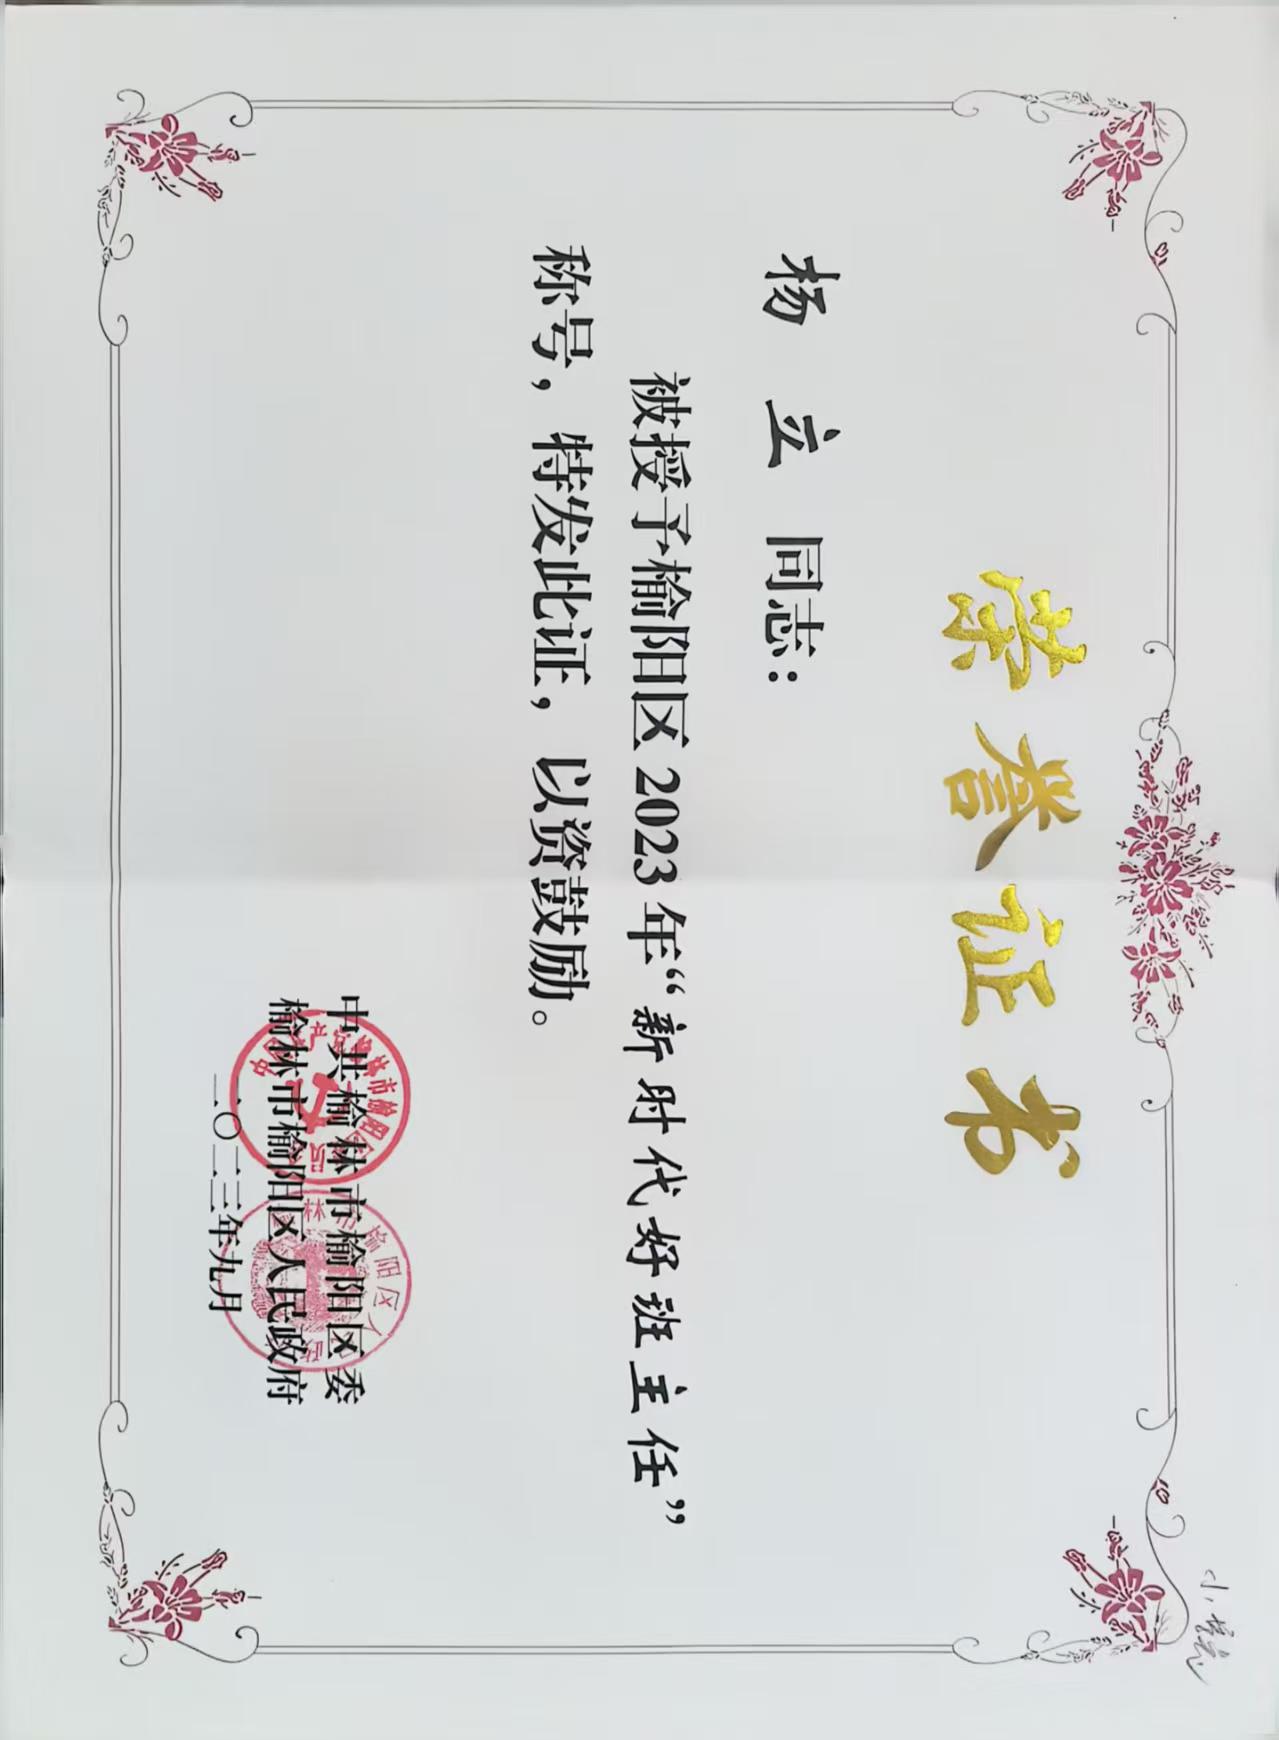 荣誉证书
杨 立 同志：
被授予榆阳区2023年“新时代好班主任”
称号，特发此证，以资鼓励。
中共榆林市榆阳区委
榆林市榆阳区人民政府
二〇二三年九月